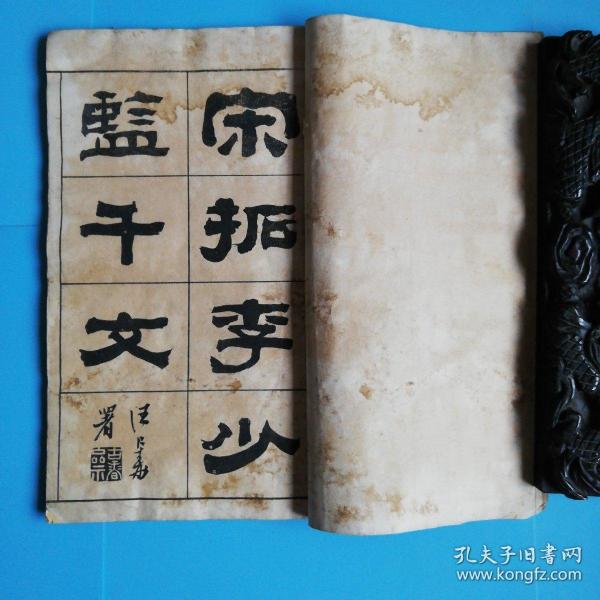 宋拓李少
監千文
汪
署
孔夫子旧書网
www.kongfz.com